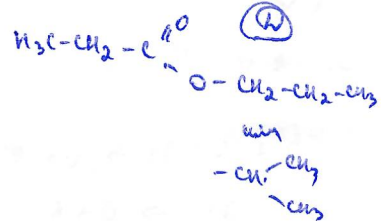 H₃C-CH₂-C=O
O-CH₂-CH₂-CH₃
-CH-CH₃
CH₃